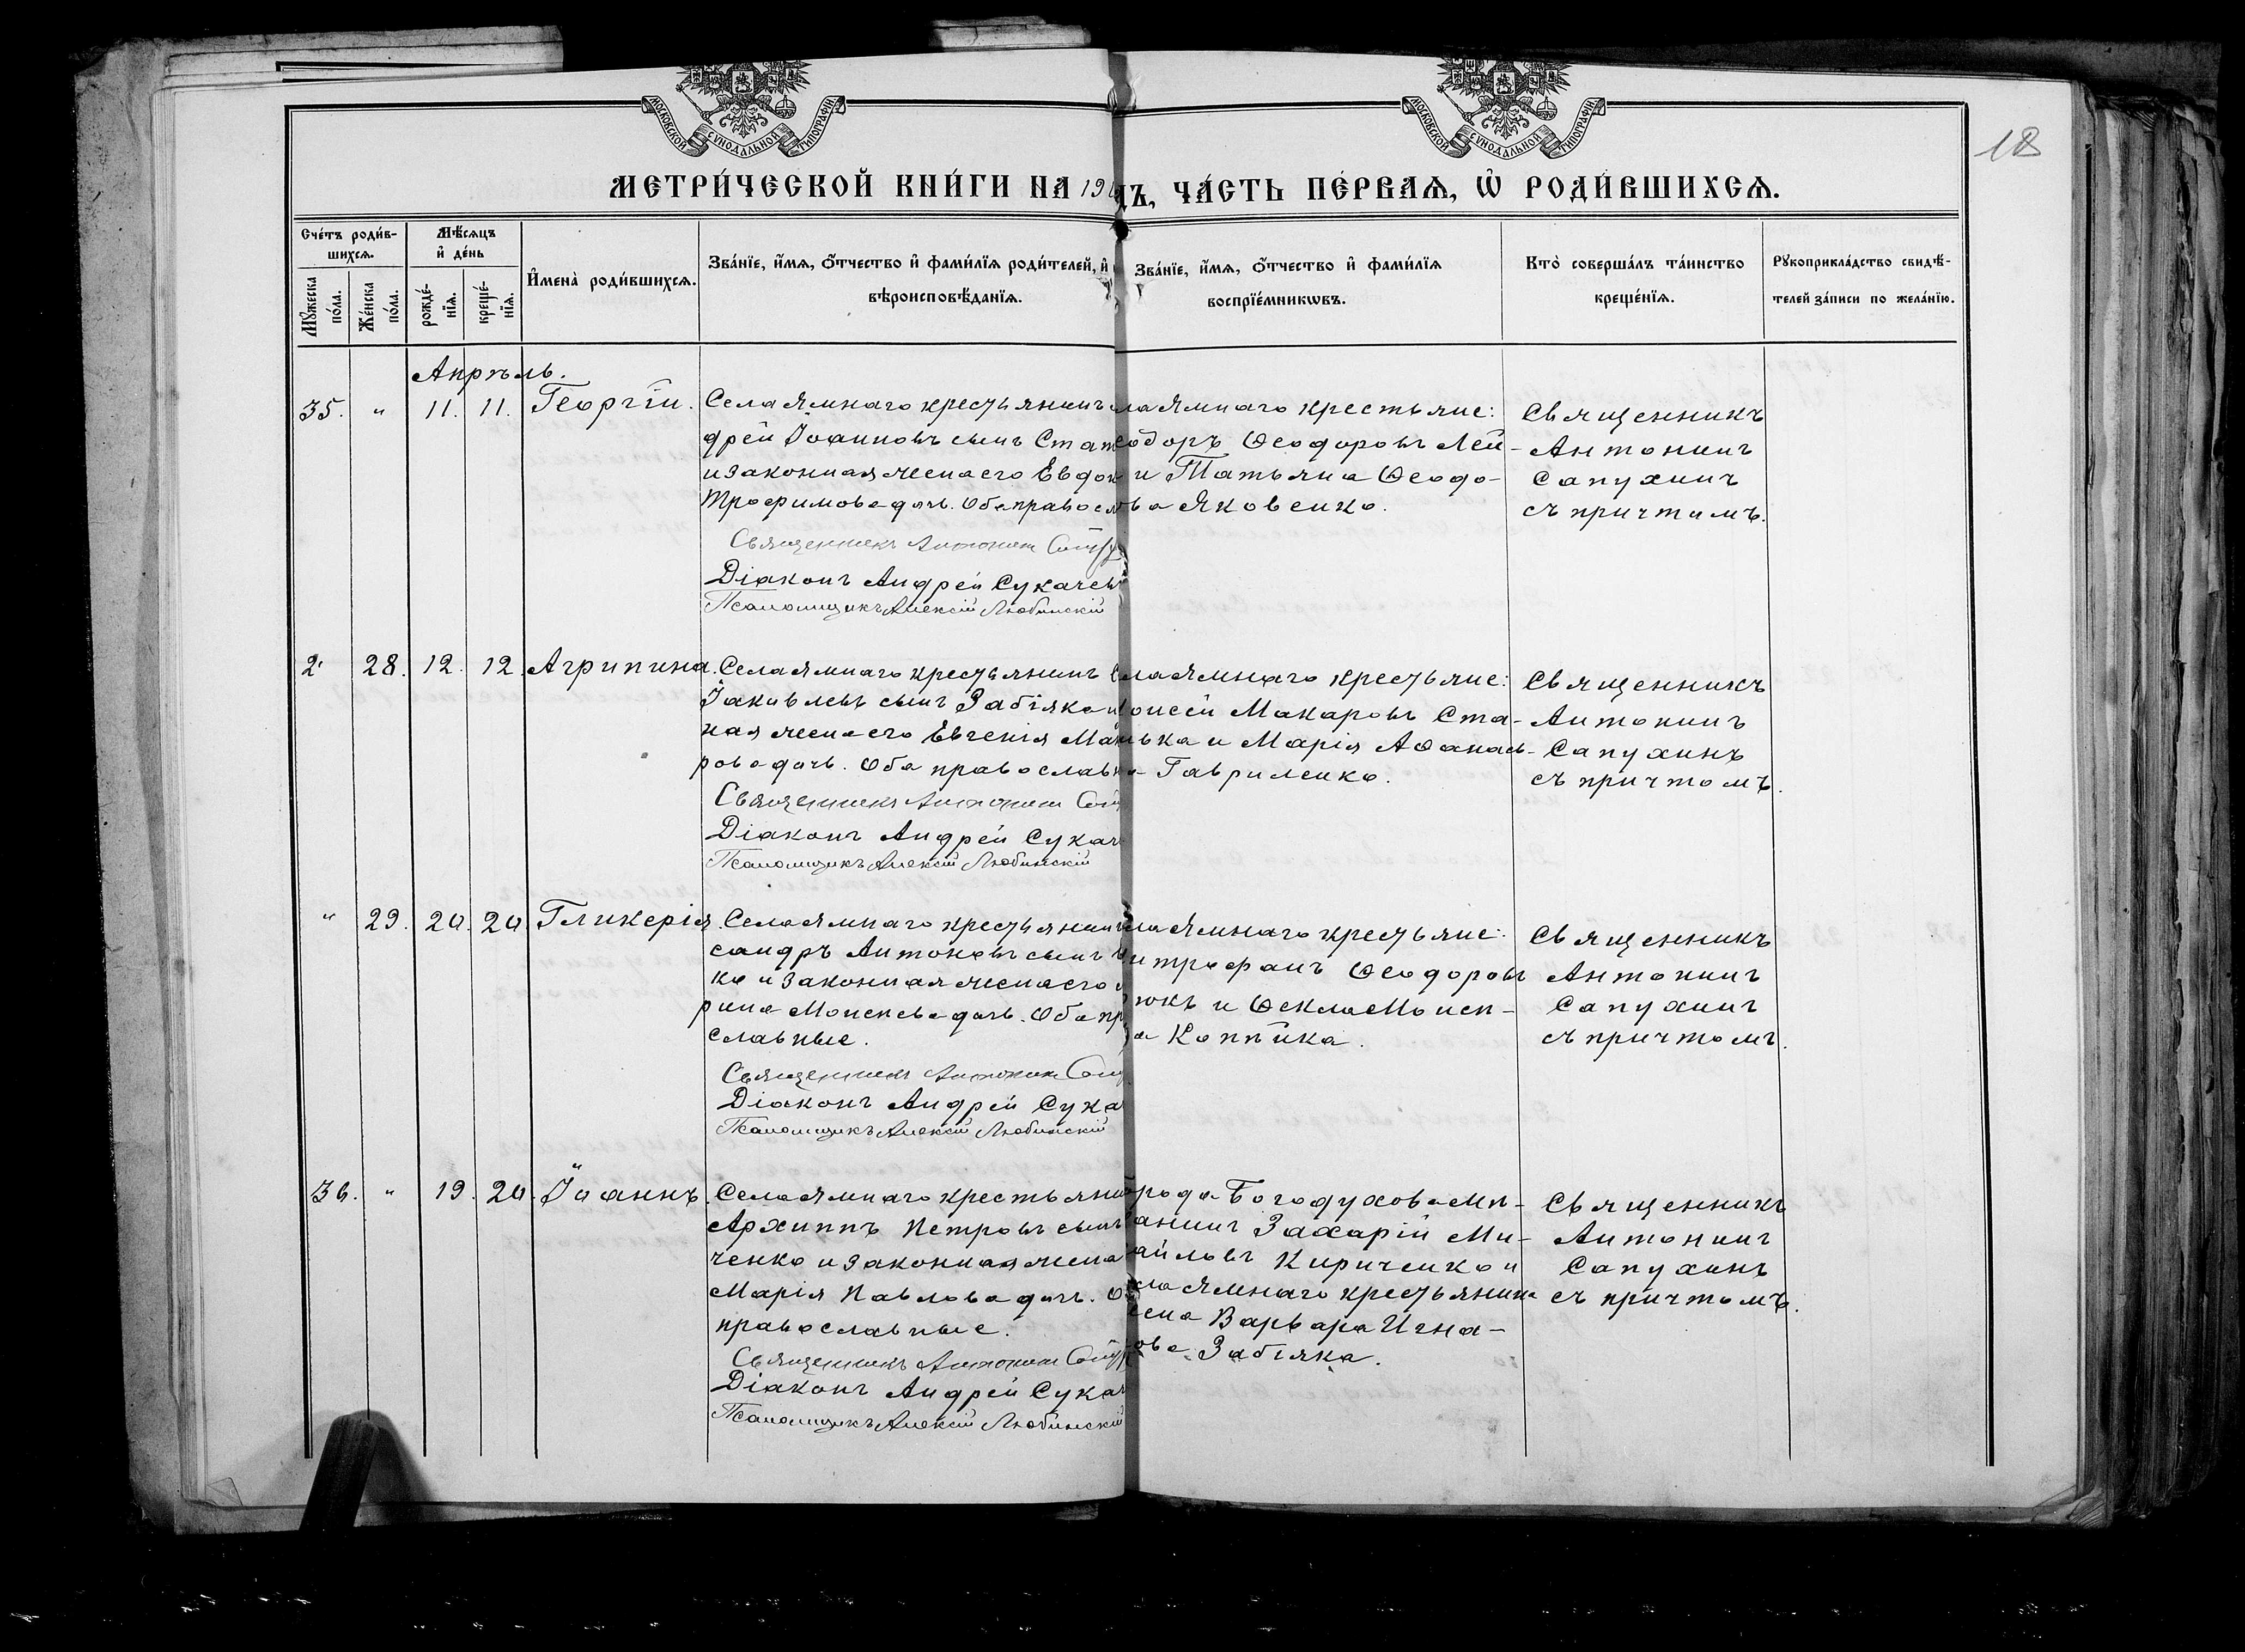 МОСКОВСКОЙ СѴНОДАЛЬНОЙ ТИПОГРАФІИ
МОСКОВСКОЙ СѴНОДАЛЬНОЙ ТИПОГРАФІИ
18
МЕТРИ́ЧЕСКОЙ КНИ́ГИ НА 19
ЧА́СТЬ ПЕ́РВАѦ, Ѡ҆ РОДИ́ВШИХСѦ.
Сче́тъ роди́в-
шихсѧ.
Мѣ́сѧцъ
и҆ де́нь
Мꙋ́жеска по́ла.
Же́нска по́ла.
рожде́-нїѧ.
креще́-нїѧ.
И҆мена̀ роди́вшихсѧ.
Зва́нїе, и҆́мѧ, ѻ҆́тчество и҆ фами́лїѧ роди́телей, и҆
вѣроисповѣ́данїѧ.
Зва́нїе, и҆́мѧ, ѻ҆́тчество и҆ фами́лїѧ
воспрїе́мникѡвъ.
Кто̀ соверша́лъ та́инство
креще́нїѧ.
Рꙋкоприкла́дство свидѣ́-
телей за́писи по жела́нїю.
Апрѣль.
35. " 11. 11. Георгій.
Села Ямнаго крестьянинъ
дрей Іоанновъ сынъ
и законная жена его
Трофимова дочь. Оба
Священникъ Антонинъ
Діаконъ Андрей
Псаломщикъ Алексій Любинскій
ла Ямнаго крестьяне:
Ѳеодоровъ Лей-
и Татьяна Ѳеодо-
ва Яковенко.
Священникъ
Антонинъ
Сапухинъ
съ причтомъ.
28. 12. 12. Агрипина.
Села Ямнаго крестьянинъ
Іаковлевъ сынъ Забіяка
ная жена его Евгенія
рова дочь. Оба
Священникъ Антонинъ
Діаконъ Андрей
Псаломщикъ Алексій Любинскій
ла Ямнаго крестьяне:
оисей Макаровъ Ста-
ька и Марія Аѳанась-
Гавриленко.
Священникъ
Антонинъ
Сапухинъ
съ причтомъ.
" 29. 20. 20. Гликерія.
Села Ямнаго крестьянинъ
сандръ Антоновъ сынъ
ко и законная жена его
рина Моисеева дочь. Оба
славные.
Священникъ Антонинъ
Діаконъ Андрей
Псаломщикъ Алексій Любинскій
ла Ямнаго крестьяне:
итрофанъ Ѳеодоровъ
юкъ и Ѳекла Моисе-
ва Копѣйка.
Священникъ
Антонинъ
Сапухинъ
съ причтомъ.
36. " 19. 20. Іоаннъ.
Села Ямнаго
Архиппъ Петровъ сынъ
ченко и законная жена
Марія Павлова дочь.
православные.
Священникъ Антонинъ
Діаконъ Андрей
Псаломщикъ Алексій Любинскій
рода Богодухова мѣ-
анинъ Захарій Ми-
айловъ Кириченко и
ла Ямнаго крестьянина
ена Варвара Игна-
ова Забіяка.
Священникъ
Антонинъ
Сапухинъ
съ причтомъ.